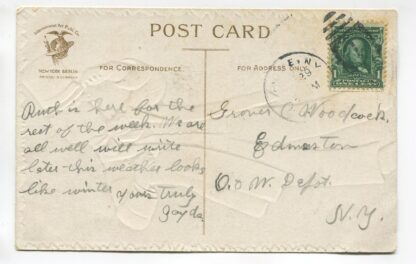 International Art Publ. Co.
NEW YORK BERLIN
POST CARD
FOR CORRESPONDENCE.
FOR ADDRESS ONLY.
Ruth is here for the
rest of the week. We are
all well will write
later this weather looks
like winter
Yours Truly
Grover C Woodcock.
Edmeston
O. & W. Depot.
N.Y.
1